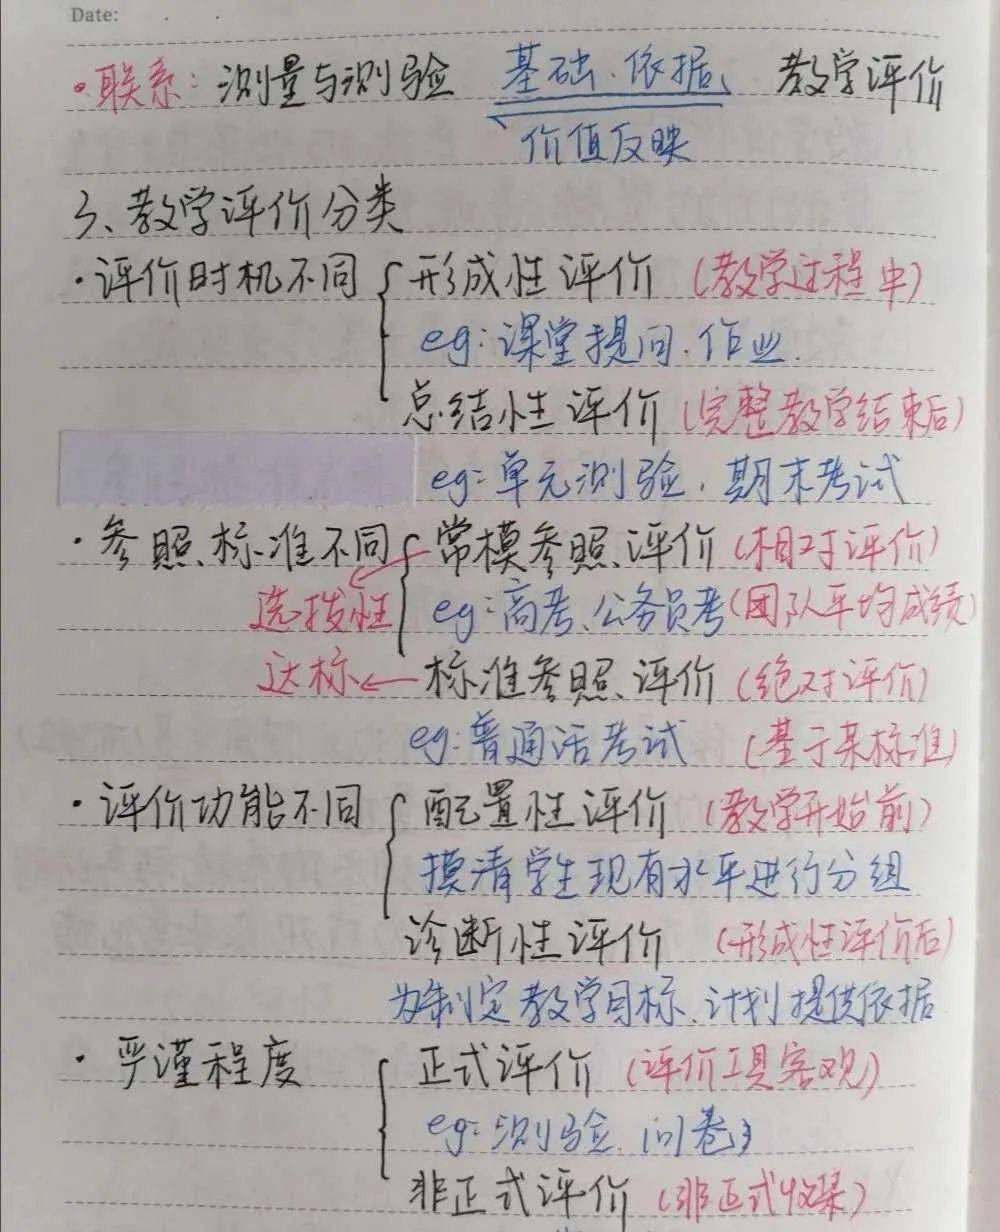 Date:
·联系：测量与测验 基础、依据 教学评价
价值反映
3、教学评价分类
·评价时机不同 { 形成性评价 (教学过程中)
eg：课堂提问、作业.
总结性评价 (完整教学结束后)
eg：单元测验、期末考试
·参照标准不同 { 常模参照评价 (相对评价)
选拔性 eg：高考、公务员考 (团队平均成绩)
达标← 标准参照评价 (绝对评价)
eg：普通话考试 (基于某标准)
·评价功能不同 { 配置性评价 (教学开始前)
摸清学生现有水平进行分组
诊断性评价 (形成性评价后)
为制定教学目标、计划提供依据
·严谨程度 { 正式评价 (评价工具客观)
eg：测验、问卷
非正式评价 (非正式收集)